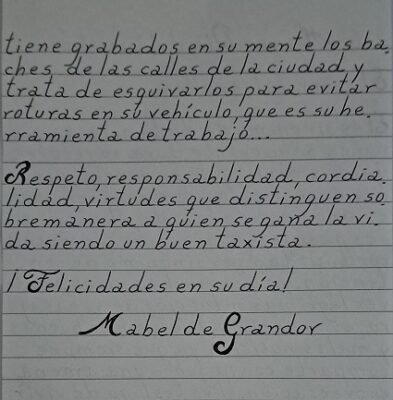 tiene grabados en su mente los ba.
ches de las calles de la ciudad y
trata de esquivarlos para evitar
roturas en su vehículo, que es su he.
rramienta de trabajo...
Respeto, responsabilidad, cordia.
lidad, virtudes que distinguen so.
bremanera a quien se gana la vi.
da siendo un buen taxista.
¡Felicidades en su día!
Mabel de Grandor